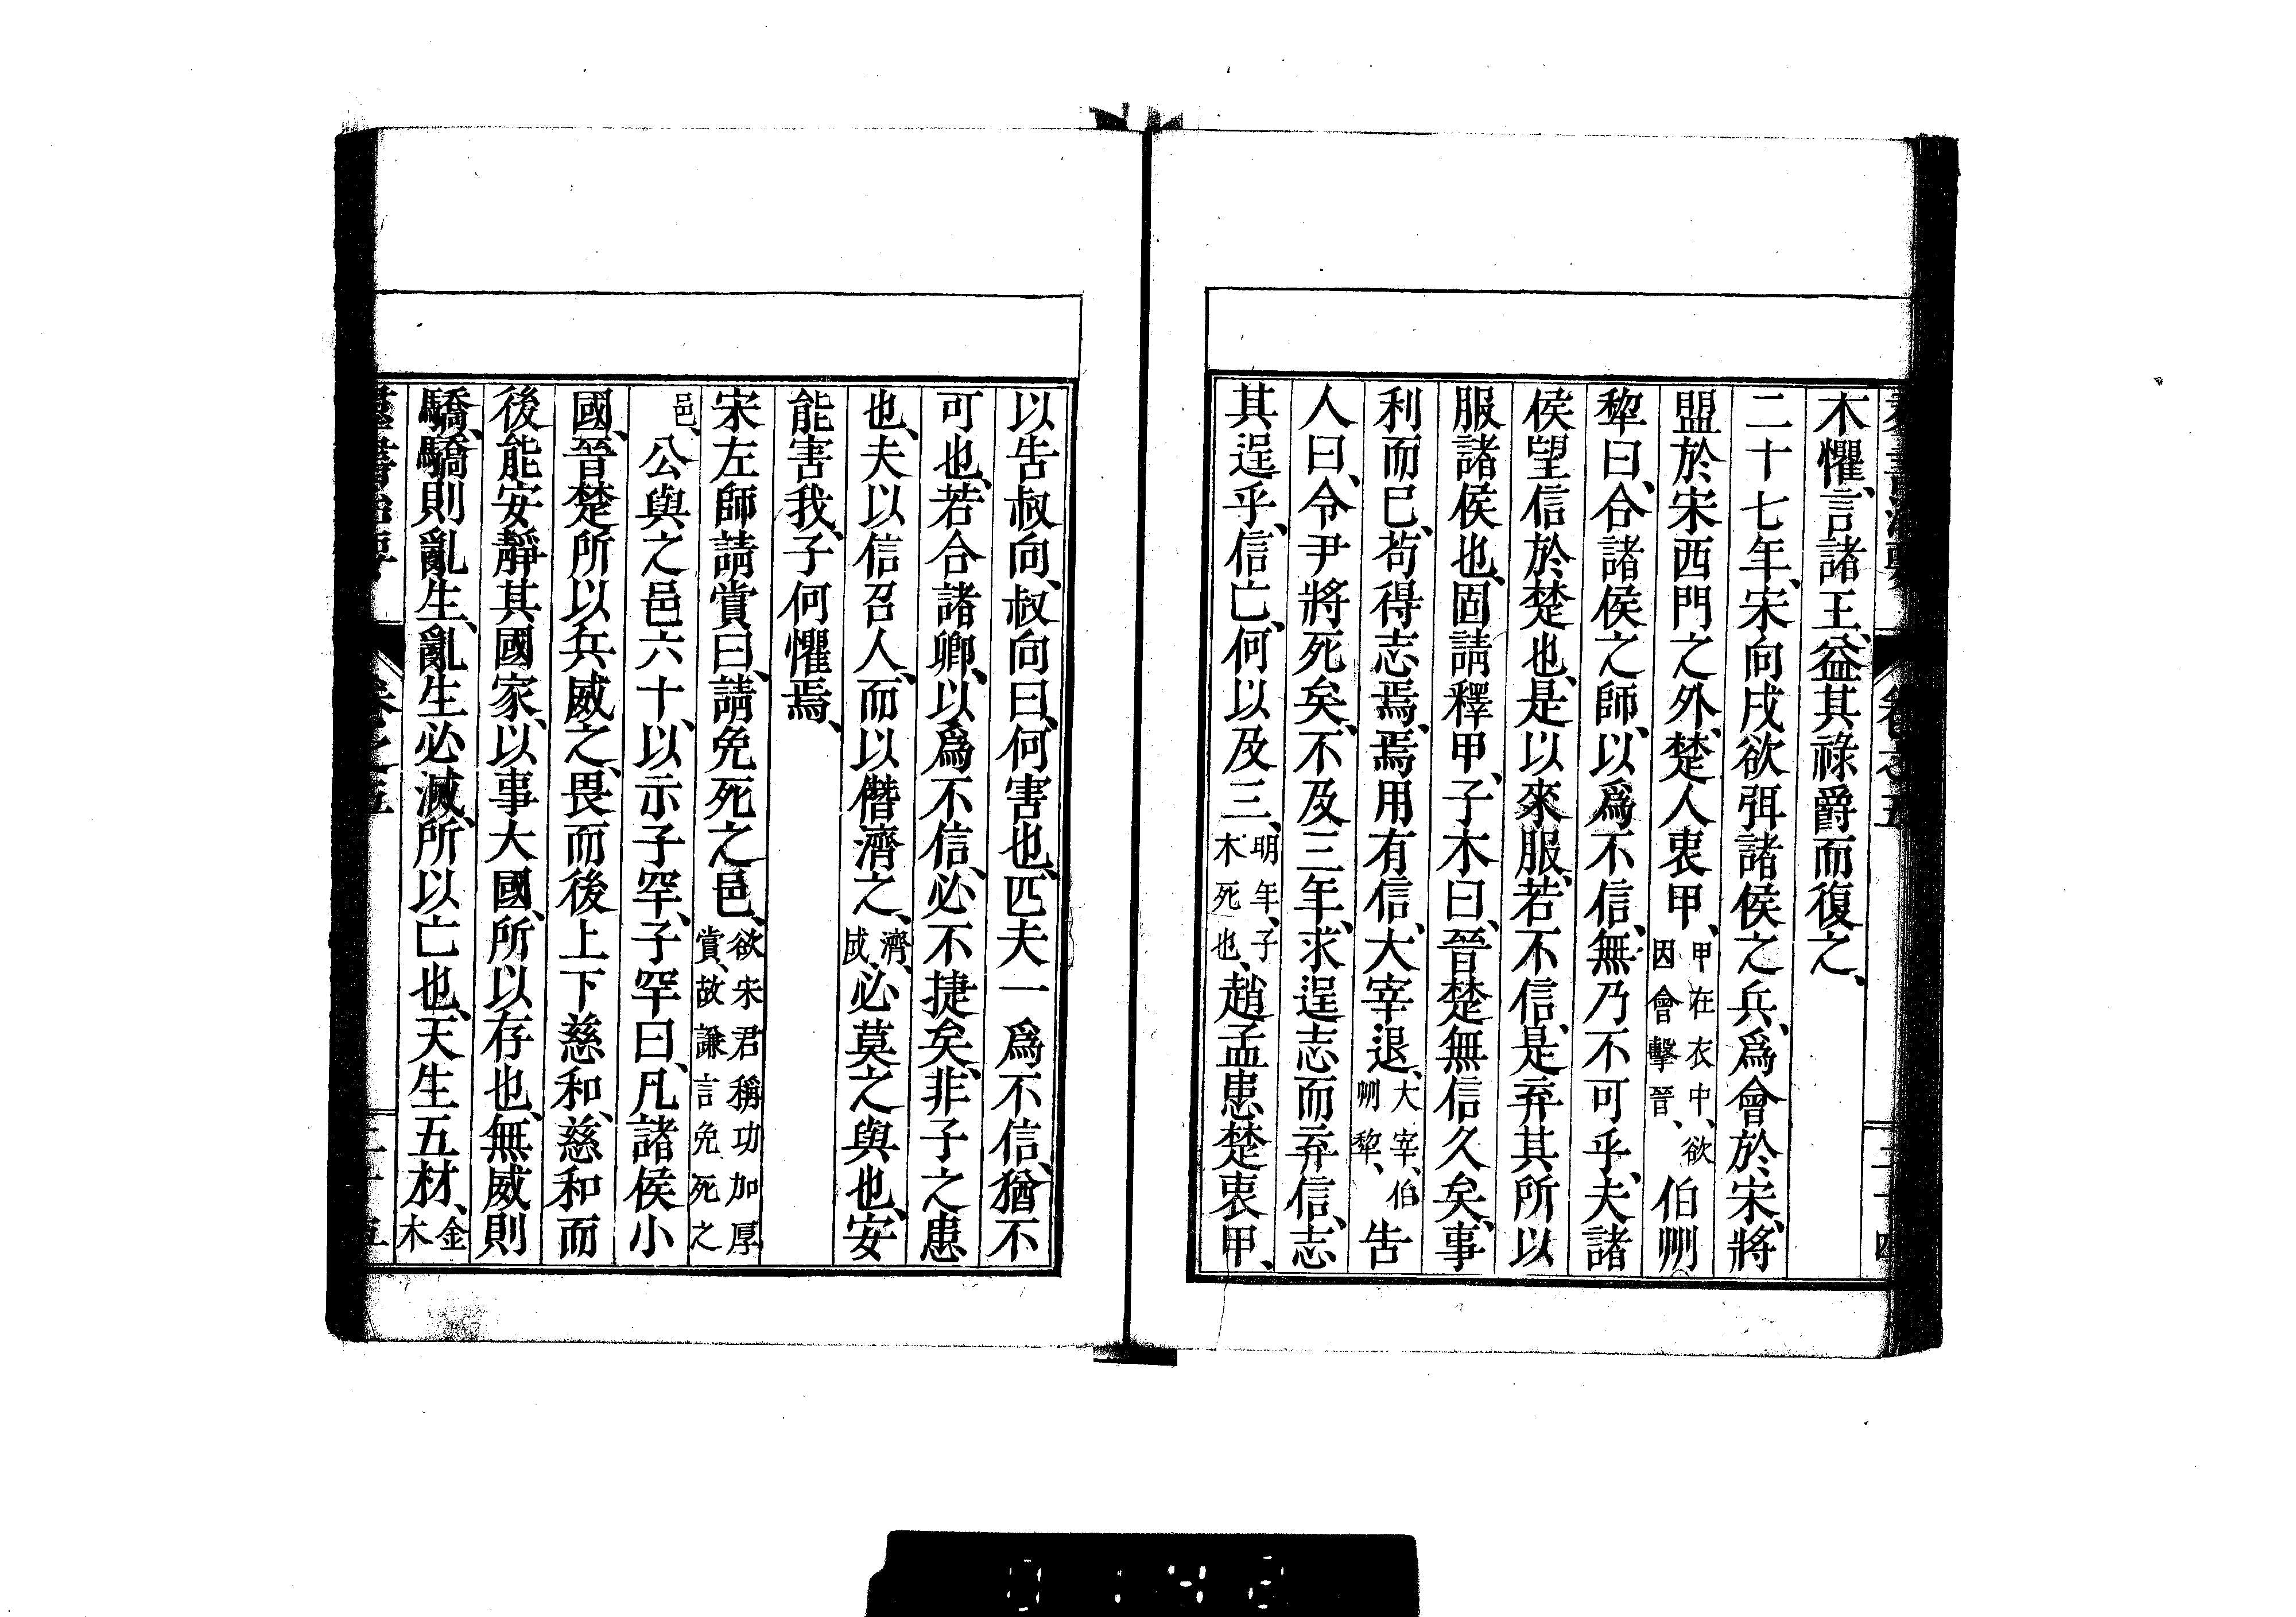 木懼、言諸王、益其祿爵而復之、
二十七年、宋向戌欲弭諸侯之兵、爲會於宋、將
盟於宋西門之外、楚人衷甲、甲在衣中、欲因會擊晉、伯州
犂曰、合諸侯之師、以爲不信、無乃不可乎、夫諸
侯望信於楚也、是以來服、若不信、是弃其所以
服諸侯也、固請釋甲、子木曰、晉楚無信久矣、事
利而已、苟得志焉、焉用有信、大宰退、大宰、伯州犂、告
人曰、令尹將死矣、不及三年、求逞志而弃信、志
其逞乎、信亡、何以及三、明年、子木死也、趙孟患楚衷甲、
以告叔向、叔向曰、何害也、匹夫一爲不信、猶不
可也、若合諸卿、以爲不信、必不捷矣、非子之患
也、夫以信召人、而以僭濟之、濟、成、必莫之與也、安
能害我、子何懼焉、
宋左師請賞曰、請免死之邑、欲宋君稱功加厚賞、故謙言免死之
邑、公與之邑六十、以示子罕、子罕曰、凡諸侯小
國、晉楚所以兵威之、畏而後上下慈和、慈和而
後能安靜其國家、以事大國、所以存也、無威則
驕、驕則亂生、亂生必滅、所以亡也、天生五材、金木
羣書治要 卷之五 二十五